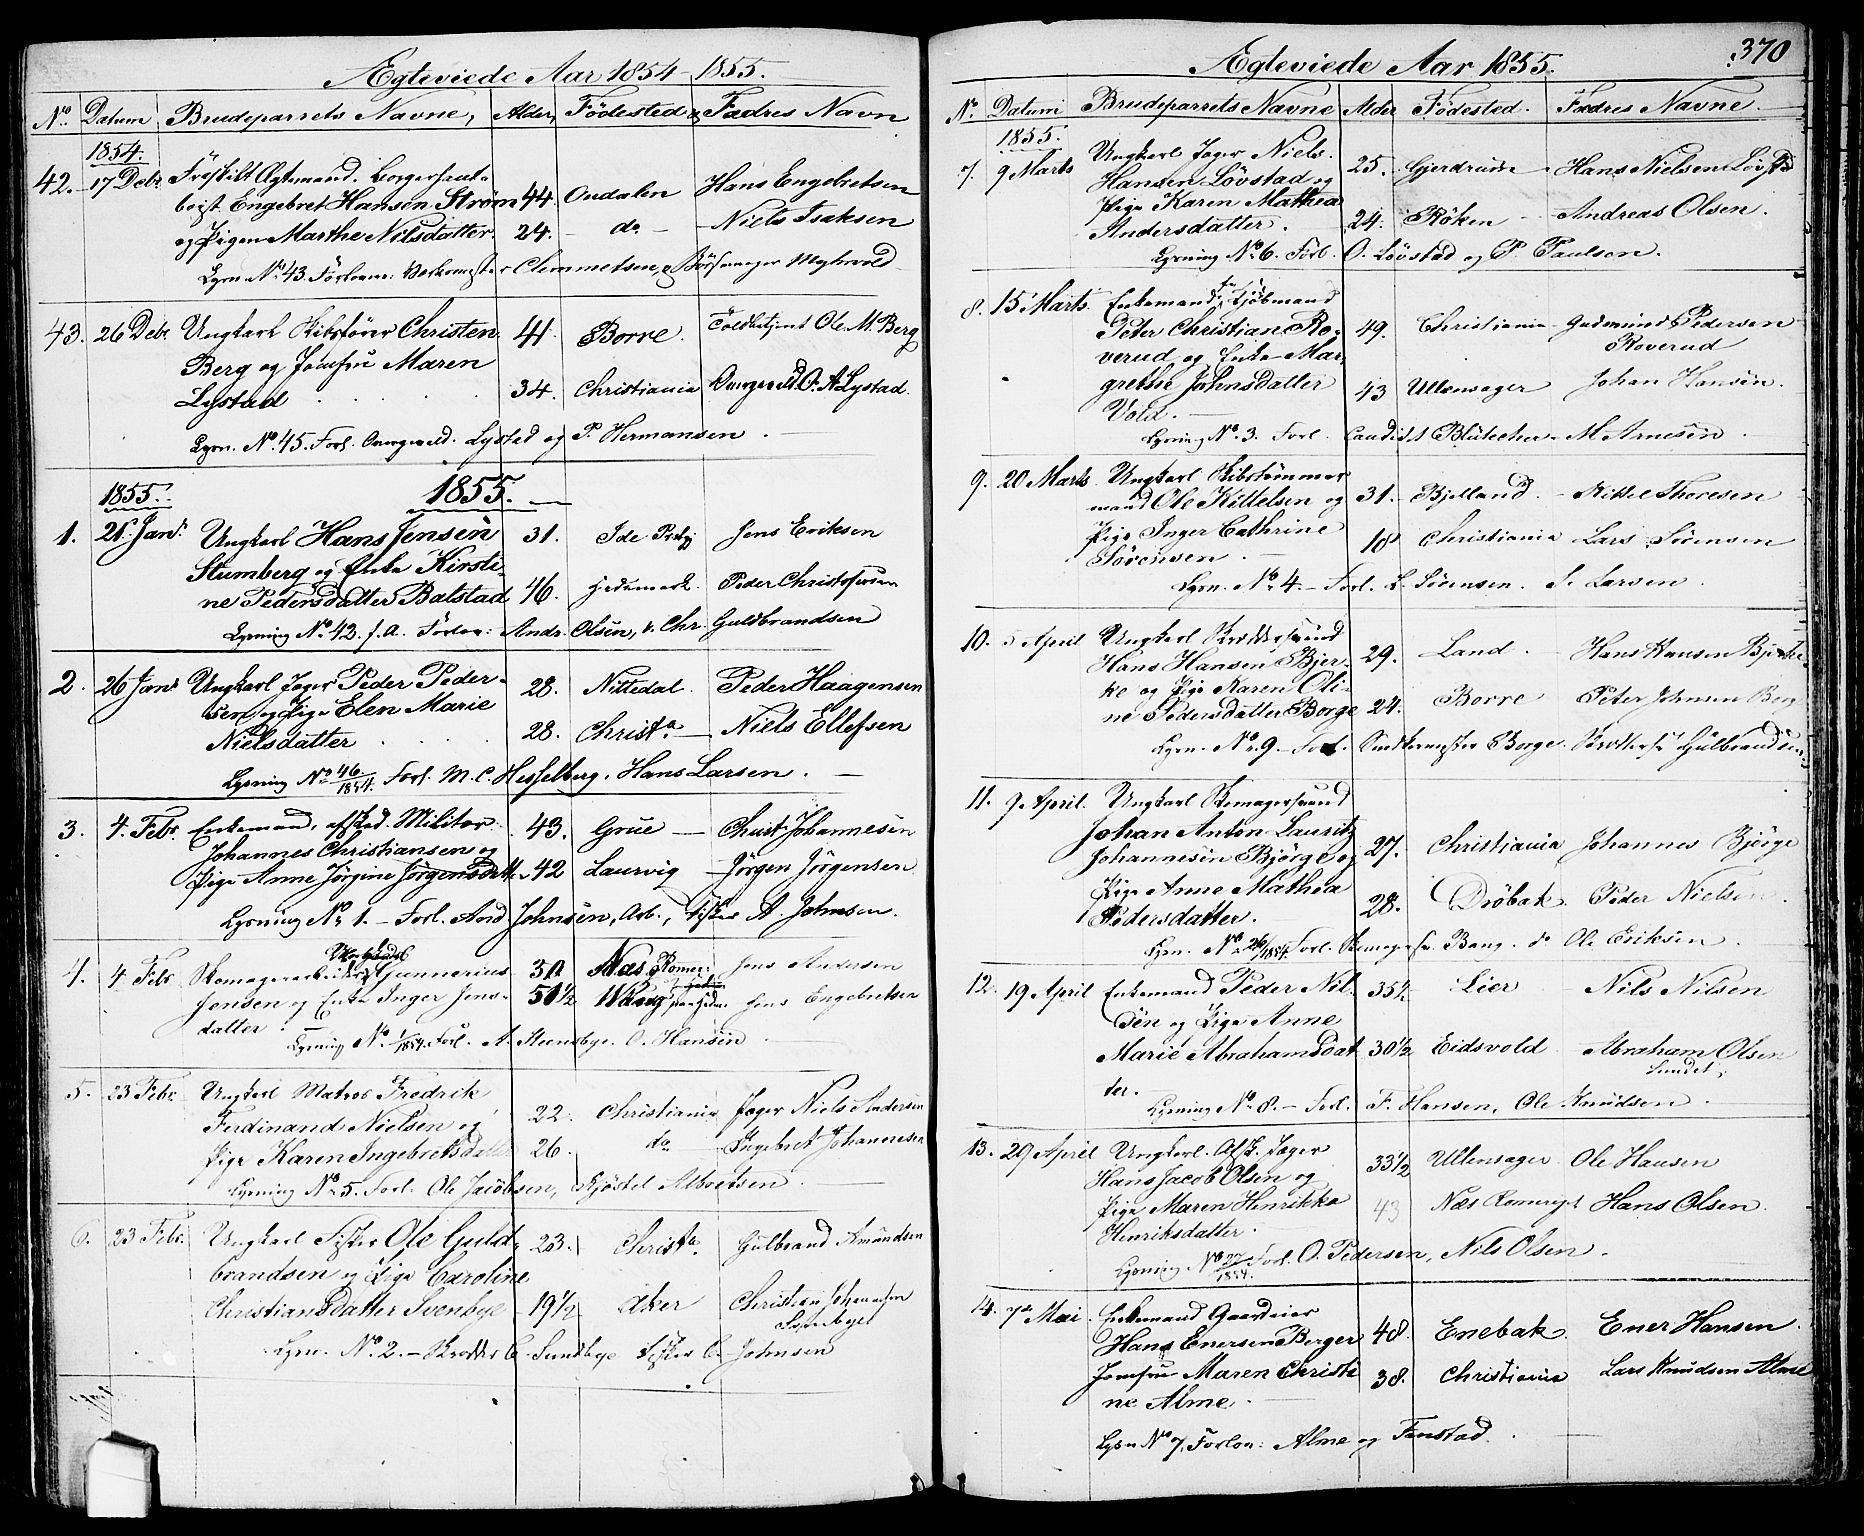 Ægteviede Aar 1854-1855.
No. Datum Brudeparrets Navne, Alder, Fødested og Fædres Navn
1854.
42. 17 Debr Fraskilt Ægtemand.
Engebret Hansen Strøm 44. Oudalen Hans Engebretsen
og Pigen Marthe Nilsdatter. 24. do Niels Isaksen
Lysn. No 43. Forlovere: Clemmetsen, og Børsemager Myhrvold
43. 26 Debr. Ungkarl Skibsfører Christen 41. Borre. Toldbetjent Ole M. Berg
Berg og Jomfru Maren
Lystad 34. Christiania O. A. Lystad.
Lysn. No. 45. Forl. Lysted og P. Hermansen
1855. 1855.
1. 21 Jan. Ungkarl Hans Jensen 31. Ide Jens Eriksen
Stumberg og Enke Kirsti-
ne Pedersdatter Balstad 46. Hedemark. Peder Christophersen
Lysning No. 42. f. A. Forlov: Andr. Olsen, Chr. Guldbrandsen
2. 26 Jan. Ungkarl Jæger Peder Peder- 28. Nittedal. Peder Haagensen
sen og Pige Elen Marie
Nielsdatter 28. Christa Niels Ellefsen
Lysning No 46/1854. Forl. M. C. Hesselberg, Hans Larsen.
3. 4. Febr. Enkemand, afsked. Militær 43. Grue Christ. Johannesen
Johannes Christiansen og
Pige Anne Jørgine Jørgensdatt. 42 Laurvig Jørgen Jørgensen
Lysning No. 1. Forl. And. Johnsen, Arb., Fisker A. Johnsen.
4. 4 Febr Skomagerarbeider Gunnerius 30 Næs Romer: Jens Andersen
Jensen og Enke Inger Jens- 50½ Wang Jens Engebretsen
datter.
Lysning No. 1/1854. Forl. A. Steensbye. O. Hansen
5. 23 Febr. Ungkarl Matros Fredrik 22. Christiania Jæger Niels Andersen
Ferdinand Nielsen og
Pige Karen Ingebretsdatter 26. do Ingebret Johannesen
Lysning No 5. Forl. Ole Jacobsen, Kjøstel Albretsen
6. 23 Febr. Ungkarl Fisker Ole Guld- 23. Christa. Gulbrand Amundsen
brandsen og Pige Caroline
Christiansdatter Svenbye 19½ Aker Christian Johannesen
Svenbye
Lysn. No. 2. Skrædder C. Sundbye Fisker C. Johnsen
Ægteviede Aar 1855. 370
No. Datum Brudeparrets Navne Alder Fødested. Fædres Navne.
1855.
7. 9 Marts Ungkarl Jæger Niels 25. Gjerdrum Hans Nielsen Løvstad
Hansen Løvstad og
Pige Karen Mathea
Andersdatter. 24. Røken Andreas Olsen.
Lysning No. 6. Forl. O. Løvstad og P. Paulsen.
8. 15 Marts Enkemand, Kjøbmand
Peter Christian Ro- 49. Christiania Gudmund Pedersen
verud og Enke Mar- Roverud
grethe Johnsdatter 43 Ullensager Johan Hansen.
Vold.
Lysning No. 3. Forl. Candidt Blütecher M Arnesen
9. 20 Marts Ungkarl Skibstømmer
mand Ole Kittelsen og 31. Bjelland. Kittel Thoresen
Pige Inger Cathrine
Sørensen 18 Christiania Lars Sørensen
Lysn. No. 4. Forl. L. Sørensen. S. Larsen.
10. 5 April Ungkarl Skræddersvend
Hans Hansen Bjer- 29. Land. Hans Hansen Bjerke
ke og Pige Karen Oli-
ne Pedersdatter Borge 24. Borre Peter Johnsen
Lysn. No. 9. Forl. Snedkermester Borge. Gulbrandsen
11. 9. April. Ungkarl Skomagersvend
Johan Anton Lauritz
Johannesen Bjørge og 27. Christiania Johannes Bjørge
Pige Anne Mathea
Pedersdatter. 28. Drøbak Peder Nielsen.
Lysn. No 26/1854. Forl. Skomagersv. Bang. do Ole Eriksen
12. 19 April Enkemand Peder Nil- 35½ Lier Nils Nilsen
sen og Pige Anne
Marie Abrahamsdat 30½ Eidsvold Abraham Olsen
ter. Sundet,
Lysning No. 8. Forl. F. Hansen, Ole Knudsen
13. 29 April Ungkarl. Afsk. Jæger 33½ Ullensager Ole Hansen
Hans Jacob Olsen og
Pige Maren Henrikke 43 Næs Romerige Hans Olsen.
Henriksdatter.
Lysning No 27/1854. Forl. O. Pedersen, Nils Olsen.
14. 7de Mai Enkemand Gaardeier
Hans Enersen Berger 48. Enebak. Ener Hansen.
Jomfru Maren Christi 38. Christiania Lars Knudsen Alme
ne Alme.
Lysn No 7, Forlov: Alme og Fenstad.